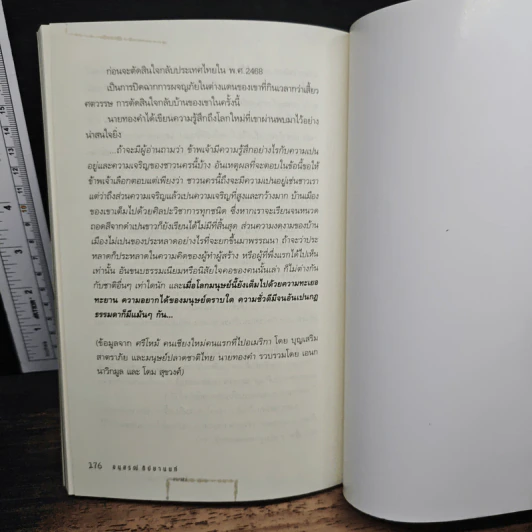 ก่อนจะตัดสินใจกลับประเทศไทยใน พ.ศ.2468
เป็นการปิดฉากการผจญภัยในต่างแดนของเขาที่กินเวลากว่าเสี้ยว
ศตวรรษ การตัดสินใจกลับบ้านของเขาในครั้งนี้
นายทองคำได้เขียนความรู้สึกถึงโลกใหม่ที่เขาผ่านพบมาไว้อย่าง
น่าสนใจยิ่ง
...ถ้าจะมีผู้อ่านถามว่า ข้าพเจ้ามีความรู้สึกอย่างไรกับความเปน
อยู่และความเจริญของชาวนครนี้บ้าง อันเหตุผลที่จะตอบในข้อนี้ขอให้
ข้าพเจ้าเลือกตอบแต่เพียงว่า ชาวนครนี้ถึงจะมีความเปนอยู่เช่นชาวเรา
แต่ว่าถึงส่วนความเจริญแล้วเปนความเจริญที่สูงและกว้างมาก บ้านเมือง
ของเขาเต็มไปด้วยศิลปะวิชาการทุกชนิด ซึ่งหากเราจะเรียนจนหนวด
ถอดสีจากดำเปนขาวก็ยังเรียนได้ไม่มีที่สิ้นสุด ส่วนความงดงามของบ้าน
เมืองไม่เปนของประหลาดอย่างไรที่จะยกขึ้นมาพรรณนา ถ้าจะว่าประ
หลาดก็ประหลาดในความคิดของผู้ทำผู้สร้าง หรือผู้ที่พึ่งแรกได้ไปเห็น
เท่านั้น อันขนบธรรมเนียมหรือนิสัยใจคอของคนนั้นเล่า ก็ไม่ต่างกัน
กับชาติอื่นๆ เท่าใดนัก และเมื่อโลกมนุษย์นี้ยังเต็มไปด้วยความทะเยอ
ทะยาน ความอยากได้ของมนุษย์ตราบใด ความชั่วดีมีจนอันเปนกฎ
ธรรมดาก็มีแม้นๆ กัน...
(ข้อมูลจาก ศรีโหม้ คนเชียงใหม่คนแรกที่ไปอเมริกา โดย บุญเสริม
สาตราภัย และมนุษย์ปลาดชาติไทย นายทองคำ รวบรวมโดย เอนก
นาวิกมูล และ โดม สุขวงศ์)
176 อนุสรณ์ ติปยานนท์